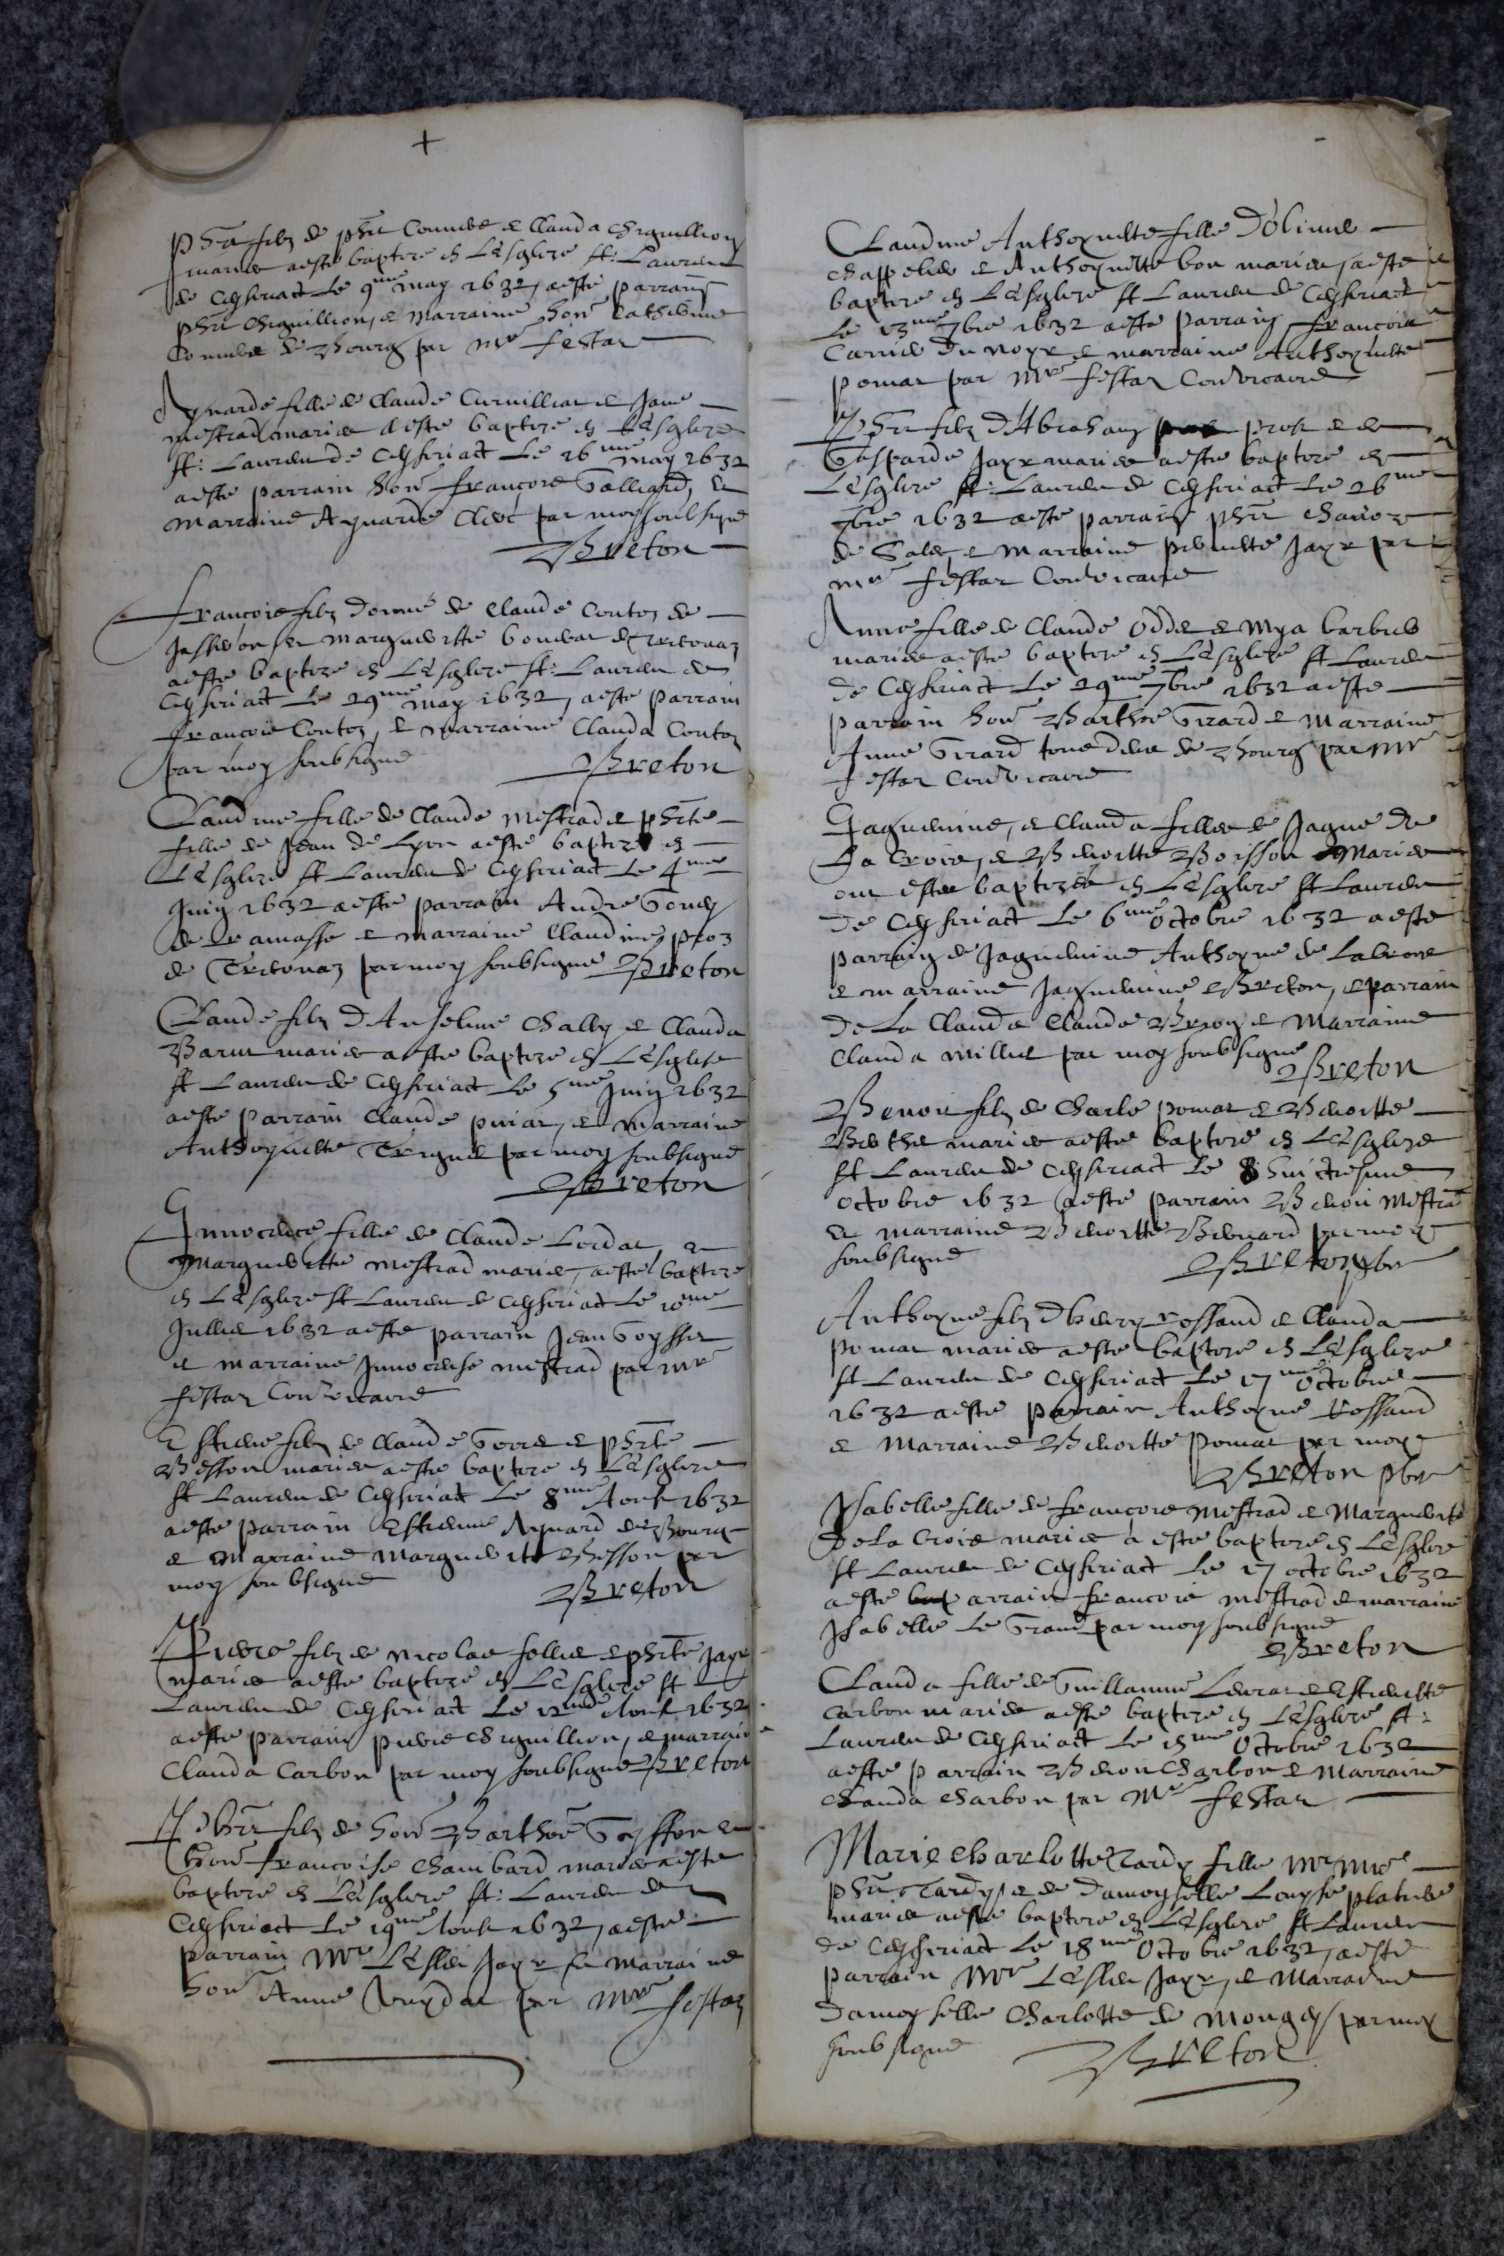 +
phẽ filz de phẽ Conn & Clauda Chiguillion
mariés a esté baptizé en L'Esglize st: Laurent
de Ceyseriact le 9me may 1632, a esté parrain
phẽ Chiguillion, & marraine hone Catherine
de Bourg par Mre festaz
Aynarde fille de Claude Curvilliat & Jane
mestrad mariés a esté baptizé en L'Esglize
st: Laurent de Ceyseriact Le 16me may 1632
a esté parrain hone françois Galliard, &
marraine Aynarde Clerc par moy soubsigné
Breton
françois filz donné de Claude Conton de
Jasseron & Margueritte bouvar de Treconaz
a esté baptizé en L'Esglize st: Laurent de
Ceyseriact Le 29me may 1632, a esté parrain
françois Conton, & marraine Clauda Conton
par moy soubsigné Breton
Claudine fille de Claude mestrad & phẽte
fille de Jean de Lyon a esté baptizé en
L'Esglize st Laurent de Ceyseriact Le 4me
Juin 1632 a esté parrain André
de Ramasse & marraine Claudine proz
de Treconaz par moy soubsigné Breton
Claude filz d'Anselme Chally & Clauda
Barut mariés a esté baptizé en L'Esglize
st Laurent de Ceyseriact Le 5me Juin 1632
a esté parrain Claude & marraine
Anthoynette par moy soubsigné
Breton
Innocence fille de Claude Lordat, &
Margueritte mestrad mariés, a esté baptizé
en L'Esglize st Laurent de Ceyseriact Le 10me
Juillet 1632 a esté parrain Jean Goysset
& marraine Innocense mestrad par Mre
festaz Convicaire
Estienne filz de Claude & phẽte
Besson mariés a esté baptizé en L'Esglize
st Laurent de Ceyseriact Le 8me Aoust 1632
a esté parrain Estienne Aynard de Bourg
& Marraine Marguerite Besson par
moy soubsigné Breton
Pierre filz de Nicolas folliet & phẽte Jayr
mariés a esté baptizé en L'Esglize st
Laurent de Ceyseriact Le 12me Aoust 1632
a esté parrain pierre Chiguillion, & marraine
Clauda Carbon par moy soubsigné Breton
phẽ filz de hone Barthõe Goyffon &
hone françoise Chambard mariés a esté
baptizé en L'Esglize st: Laurent de
Ceyseriact Le 19me Aoust 1632, a esté
parrain Mre L'Esleu Jayr & Marraine
hone Anne par Mre festaz
Claudine Anthoynette fille d'Olivier
Chappelier & Anthoynette bon mariés, a esté
baptizé en L'Esglize st Laurent de Ceyseriact
Le 13me 7bre 1632 a esté parrain françois
Carrier du noyr & marraine Anthoynette
pomat par Mre festaz Convicaire
phẽ filz d'Abraham prost & de
Gasparde Jayr mariés a esté baptizé en
L'Esglize st: Laurent de Ceyseriact Le 26me
7bre 1632 a esté parrain phẽ
de & Marraine pernette Jayr par
Mre festaz Convicaire
Anne fille de Claude Oddet & Mya barbier
mariés a esté baptizé en L'Esglize st Laurent
de Ceyseriact Le 29me 7bre 1632 a esté
parrain hone Barthõe Girard & Marraine
Anne Girard tous deux de Bourg par Mre
festaz Convicaire
Jaquemine, & Clauda filles de Jaque De
La Croix, & Benoitte Boisson Mariés
ont estés baptizés en L'Esglize st Laurent
de Ceyseriact Le 6me Octobre 1632 a esté
parrain de Jaquemine Anthoyne de Lacroix
& marraine Jaquemine Breton, & parrain
de La Clauda Claude & Marraine
Clauda Millet par moy soubsigné
Breton
Benoit filz de Charle pomat & Benoitte
Berthet mariés a esté baptizé en L'Esglize
st Laurent de Ceyseriact Le 8 huictiesme
Octobre 1632 a esté parrain Benoit Mestrad
& marraine Benoitte Bernard par moy
soubsigné Breton pbre
Anthoyne filz d'henry Rossand & Clauda
pomat mariés a esté baptizé en L'Esglize
st Laurent de Ceyseriact Le 17me Octobre
1632 a esté parrain Anthoyne Rossand
& Marraine Benoitte pomat par moy
Breton pbre
Isabelle fille de françois mestrad & Marguerite
De La Croix mariés a esté baptizé en L'Esglize
st Laurent de Ceyseriact Le 17 octobre 1632
a esté parrain françois mestrad & marraine
Isabelle Le Grand par moy soubsigné
Breton
Clauda fille de Guillaume & Estiennette
Carbon mariés a esté baptizé en L'Esglize st:
Laurent de Ceyseriact Le me Octobre 1632
a esté parrain Benoit Charbon & Marraine
Clauda Charbon par Mre festaz
Marie Charlotte Tardy fille Mr Mre
phẽ Tardy, & de Damoyselle Louyse platier
mariés a esté baptizé en L'Esglize st Laurent
de Ceyseriact Le 18me Octobre 1632, a esté
parrain Mre L'Esleu Jayr, & Marraine
Damoyselle Charlotte de par moy
soubsigné Breton